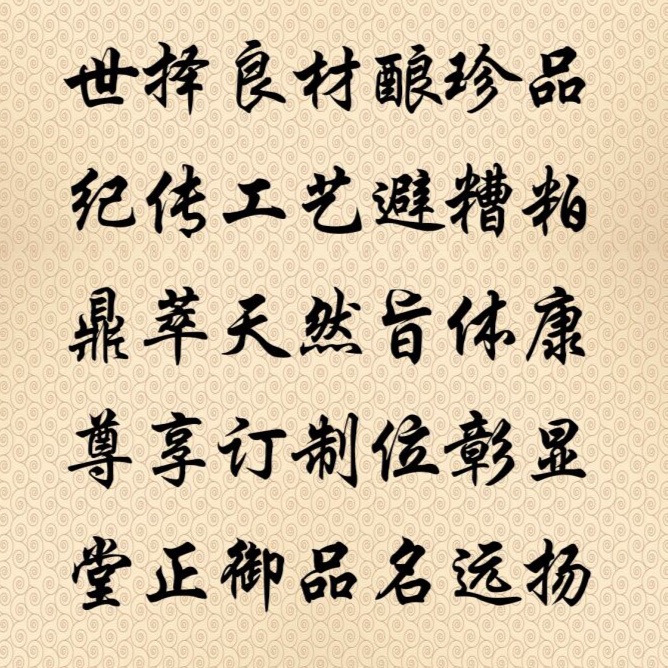 世择良材酿珍品
纪传工艺避糟粕
鼎萃天然旨体康
尊享订制位彰显
堂正御品名远扬